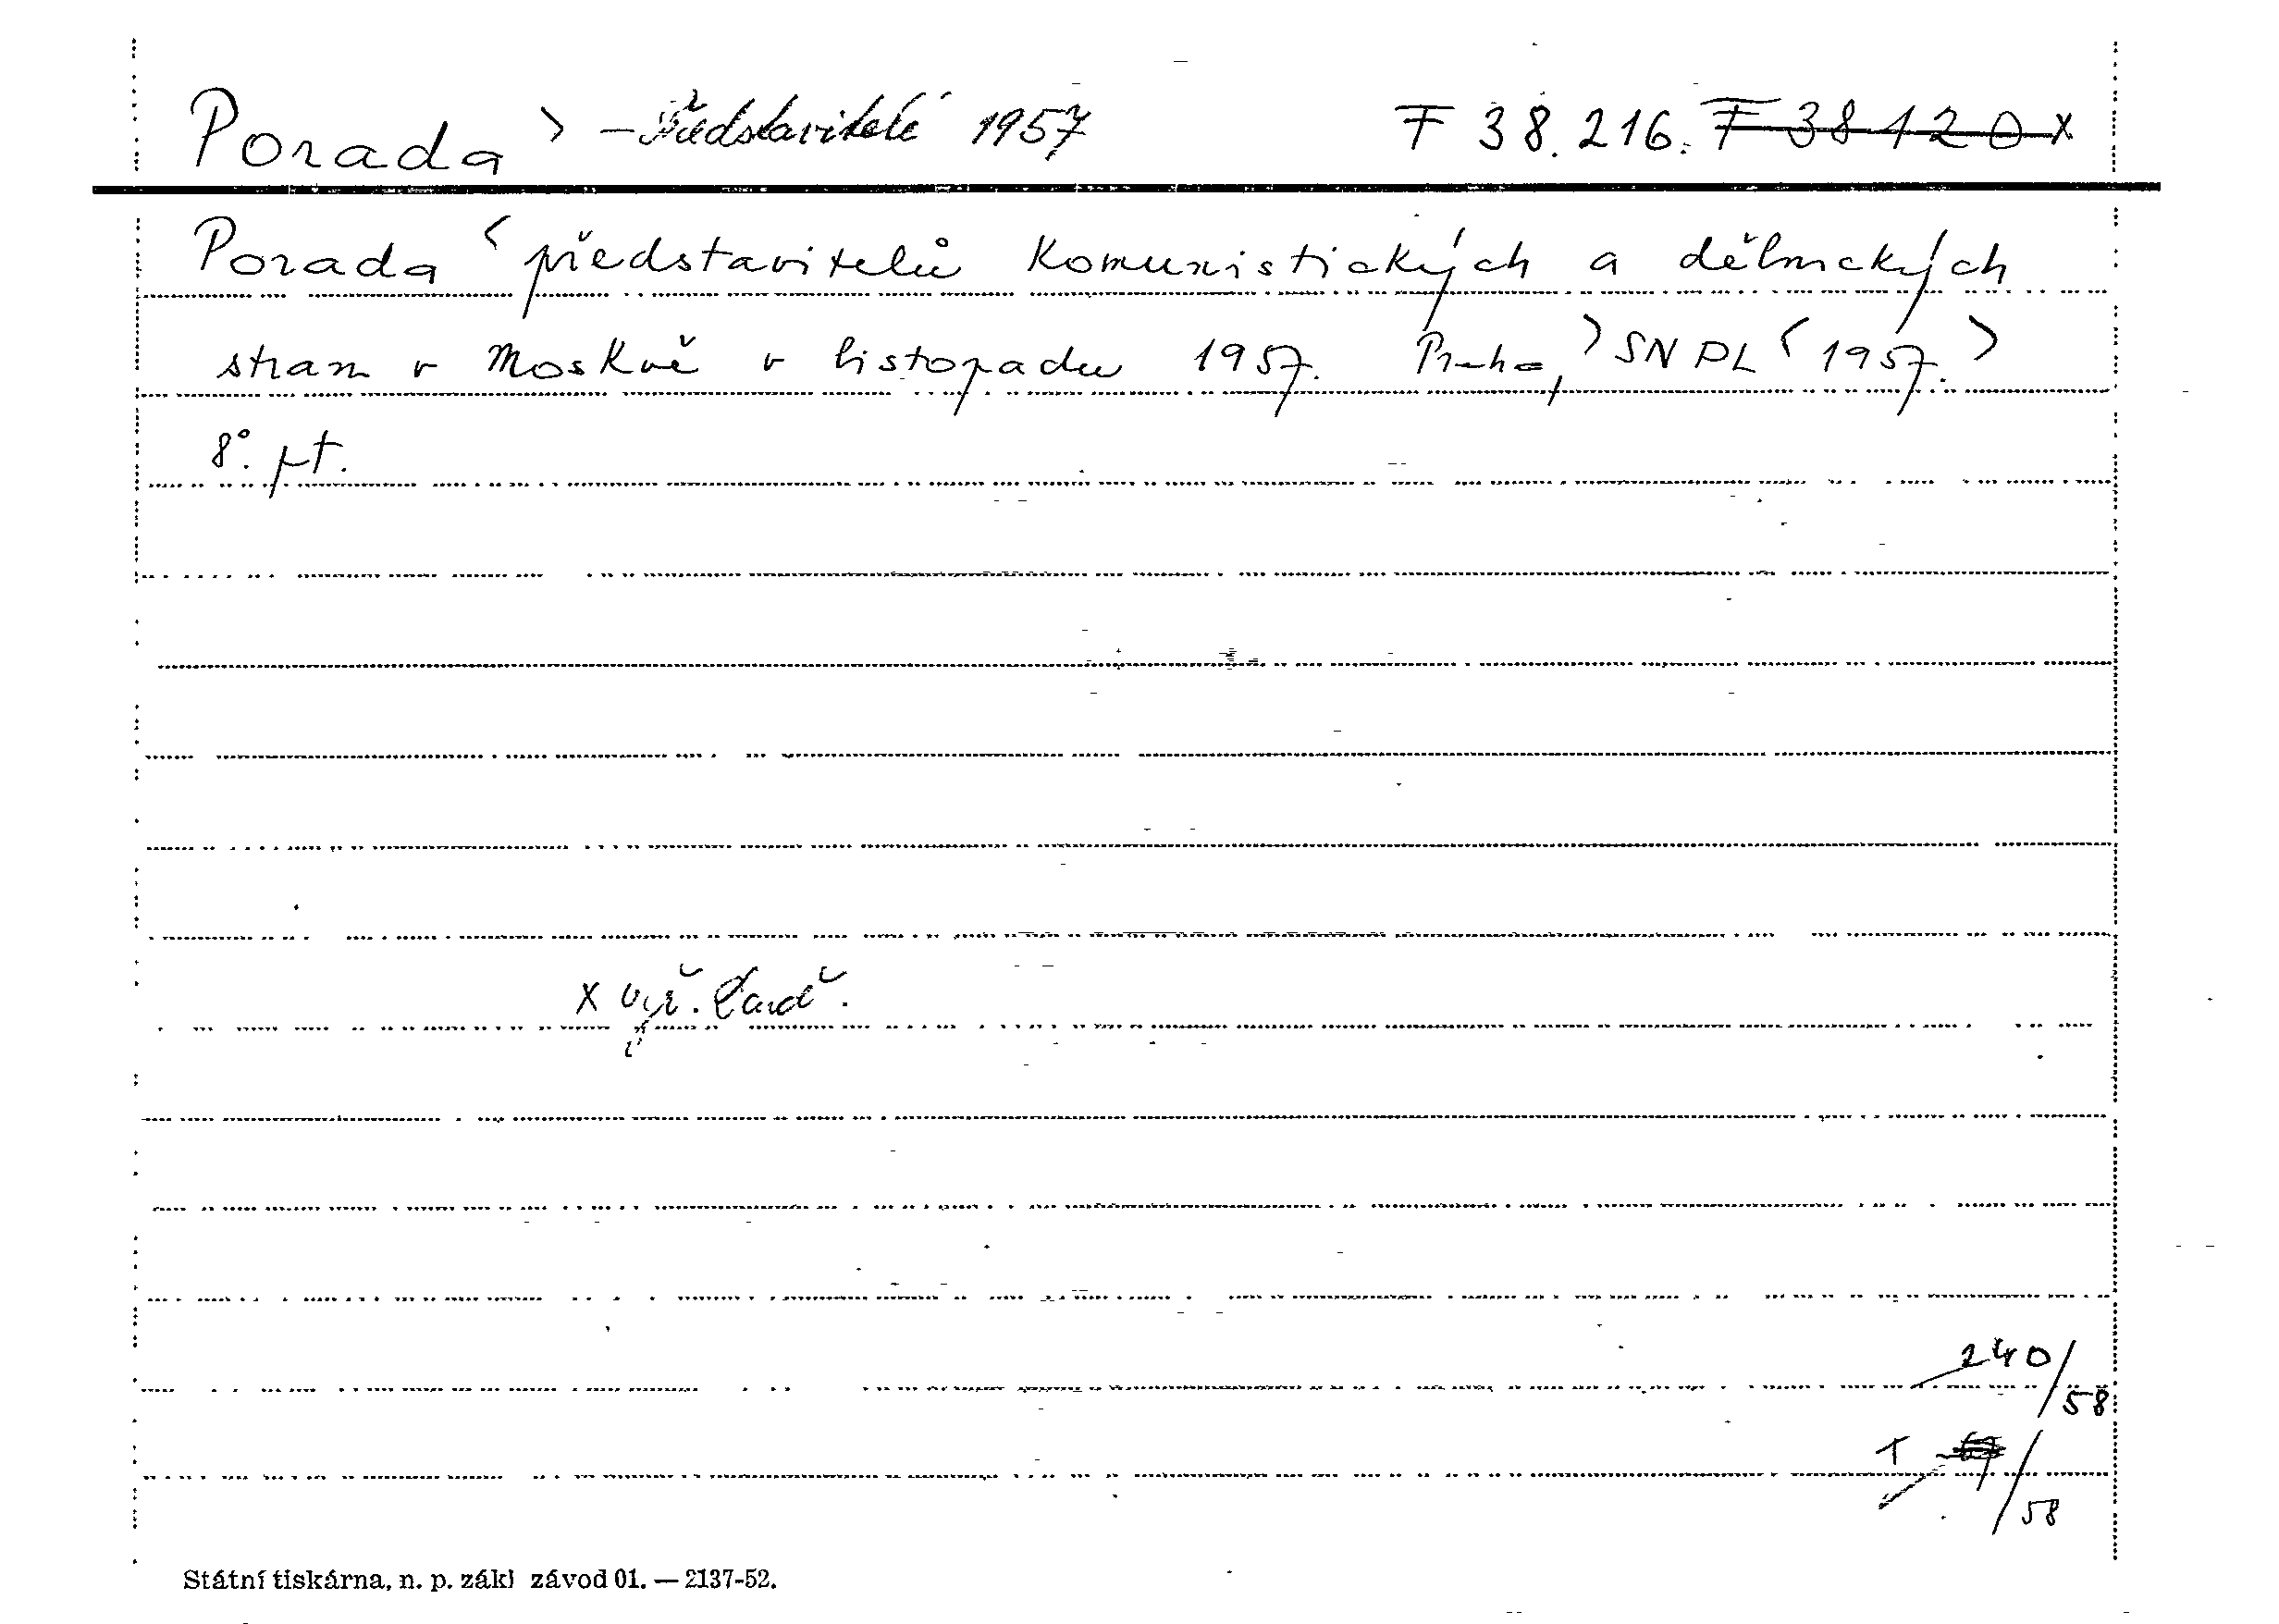 Porada > – Představitelé 1957 F 38.216. F 38120 x
Porada < představitelů Komunistických a dělnických
stran v Moskvě v listopadu 1957. Praha, > SNPL < 1957. >
8°. pt.
x vyř.
240/58
1 /58
Státní tiskárna, n. p. zákl závod 01. — 2137-52.